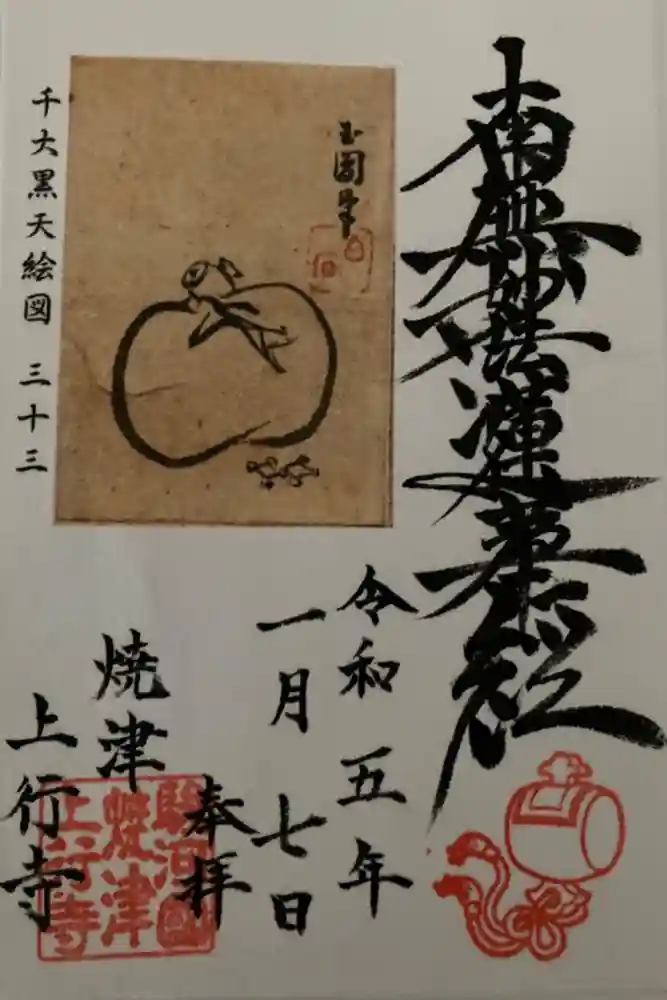 南無妙法蓮華経
玉園筆
千大黒天絵図 三十三
令和五年
一月七日
奉拝
焼津
上行寺
駿河國
焼津
上行寺